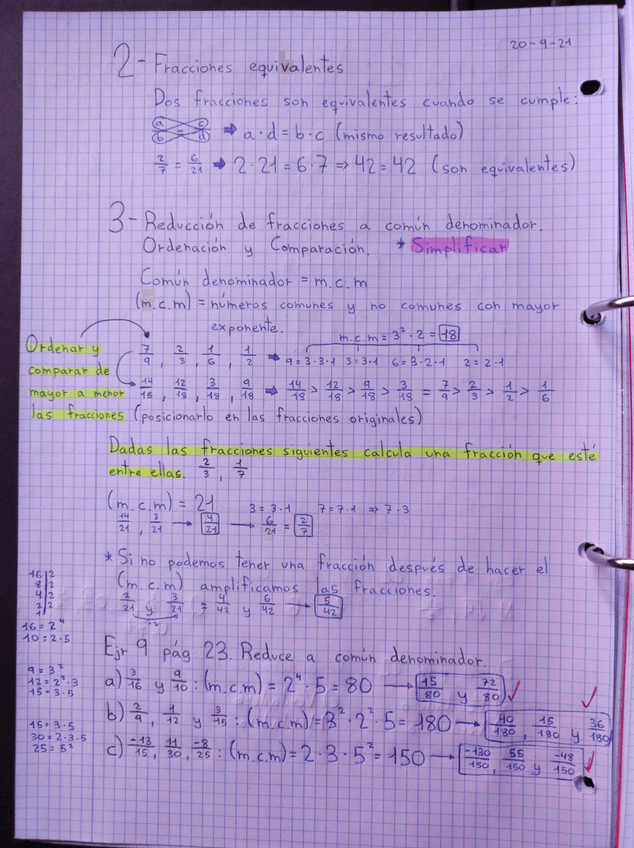 20-9-21
2- Fracciones equivalentes
Dos fracciones son equivalentes cuando se cumple:
a/b = c/d ⇒ a·d = b·c (mismo resultado)
2/7 = 6/21 ⇒ 2·21 = 6·7 ⇒ 42 = 42 (son equivalentes)
3- Reducción de fracciones a común denominador.
Ordenación y Comparación. * Simplificar
Común denominador = m.c.m
(m.c.m) = números comunes y no comunes con mayor
exponente.
m.c.m = 3² · 2 = 18
Ordenar y
comparar de
mayor a menor
las fracciones (posicionarlo en las fracciones originales)
7/9, 2/3, 1/6, 1/2 ⇒ 9=3·3·1 3=3·1 6=3·2·1 2=2·1
14/18, 12/18, 3/18, 9/18 ⇒ 14/18 > 12/18 > 9/18 > 3/18 = 7/9 > 2/3 > 1/2 > 1/6
Dadas las fracciones siguientes calcula una fracción que esté
entre ellas. 2/3, 1/7
(m.c.m) = 21 3 = 3·1 7 = 7·1 ⇒ 7·3
14/21, 3/21 → 4/21 → 6/21 = 2/7
* Si no podemos tener una fracción después de hacer el
(m.c.m) amplificamos las fracciones.
2/21 y 3/21 = 4/42 y 6/42 → 5/42
·2
16|2
8|2
4|2
2|2
1
16 = 2⁴
10 = 2·5
Ejr 9 pág 23. Reduce a común denominador.
a) 3/16 y 9/10 : (m.c.m) = 2⁴ · 5 = 80 → 15/80 y 72/80
9 = 3²
12 = 2²·3
15 = 3·5
b) 2/9, 1/12 y 3/15 : (m.c.m) = 3² · 2² · 5 = 180 → 40/180, 15/180 y 36/180
15 = 3·5
30 = 2·3·5
25 = 5²
c) -13/15, 11/30, -8/25 : (m.c.m) = 2 · 3 · 5² = 150 → -130/150, 55/150 y -48/150